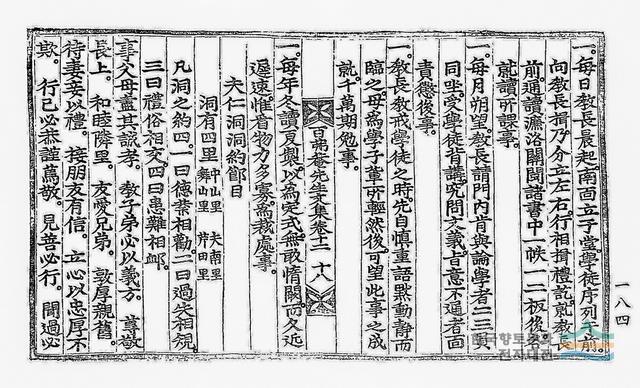 一。每日敎長晨起南面立于堂學徒序列于前。
向敎長揖乃分立左右行相揖禮訖就敎長
前通讀濂洛關閩諸書中一帙一二板後各
就讀所課事。
一。每月朔望。敎長請門內首與論學者二三員
同坐受學徒背講。究問文義。旨意不通者面
責懲後事。
一。敎長敎戒學徒之時。先自愼重語默動靜而
臨之。毋爲學子輩所輕然後。可望此事之成
就千萬期勉事。
百弗菴先生文集卷十二 十八
一。每年冬讀夏輿。以爲定式。無敢惰闕。而久近
遲速。惟看物力多寡。爲裁處事。
夫仁洞洞約節目
洞有四里 中山里 夫南里 舞山里 芹田里
凡洞之約四。一曰德業相勸。二曰過失相規。
三曰禮俗相交。四曰患難相恤。
事父母盡其誠孝。 敎子弟必以義方。 尊敬
長上。 和睦隣里。 友愛兄弟。 敦厚親舊。
待妻妾以禮。 接朋友有信。 立心以忠厚不
欺。 行己必恭謹篤敬。 見善必行。 聞過必
一八四
향토문화
전자대전